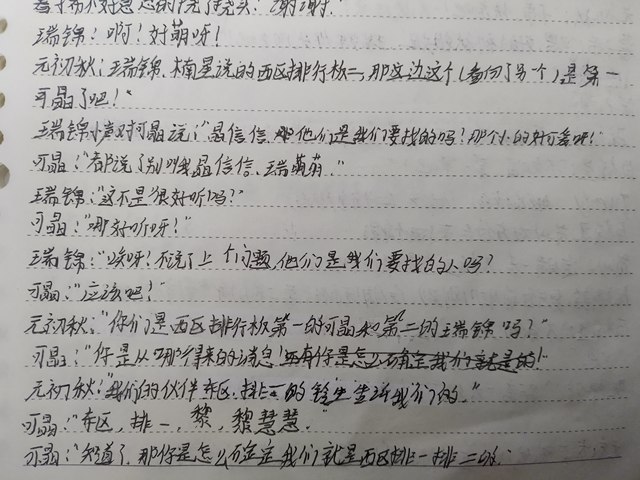 不好意思的挠了挠头:"谢谢!"
瑞锦:啊!好萌呀!
元初秋:瑞锦.楠星说的西区排行板二,那这边这个(看向了另一个)是第一
可晶了吧!"
瑞锦小声对可晶说:"晶信信,他们是我们要找的吗!那个小的好可爱呀!"
可晶:"都说了别叫我晶信信.瑞萌萌."
瑞锦:"这不是很好听吗?"
可晶:"哪好听呀!"
瑞锦:"唉呀!不说了上个问题,他们是我们要找的人吗?
可晶:"应该吧!"
元初秋:"你们是西区排行板第一的可晶和第二的瑞锦吗?"
可晶:"你是从哪拿来的消息!还有你是怎么确定我们就是的!
元初秋:"我们的伙伴东区.排一的黎告诉我们的."
可晶:"东区,排一,黎,黎慧慧."
可晶:"知道了.那你是怎么确定我们就是西区排一排二的.